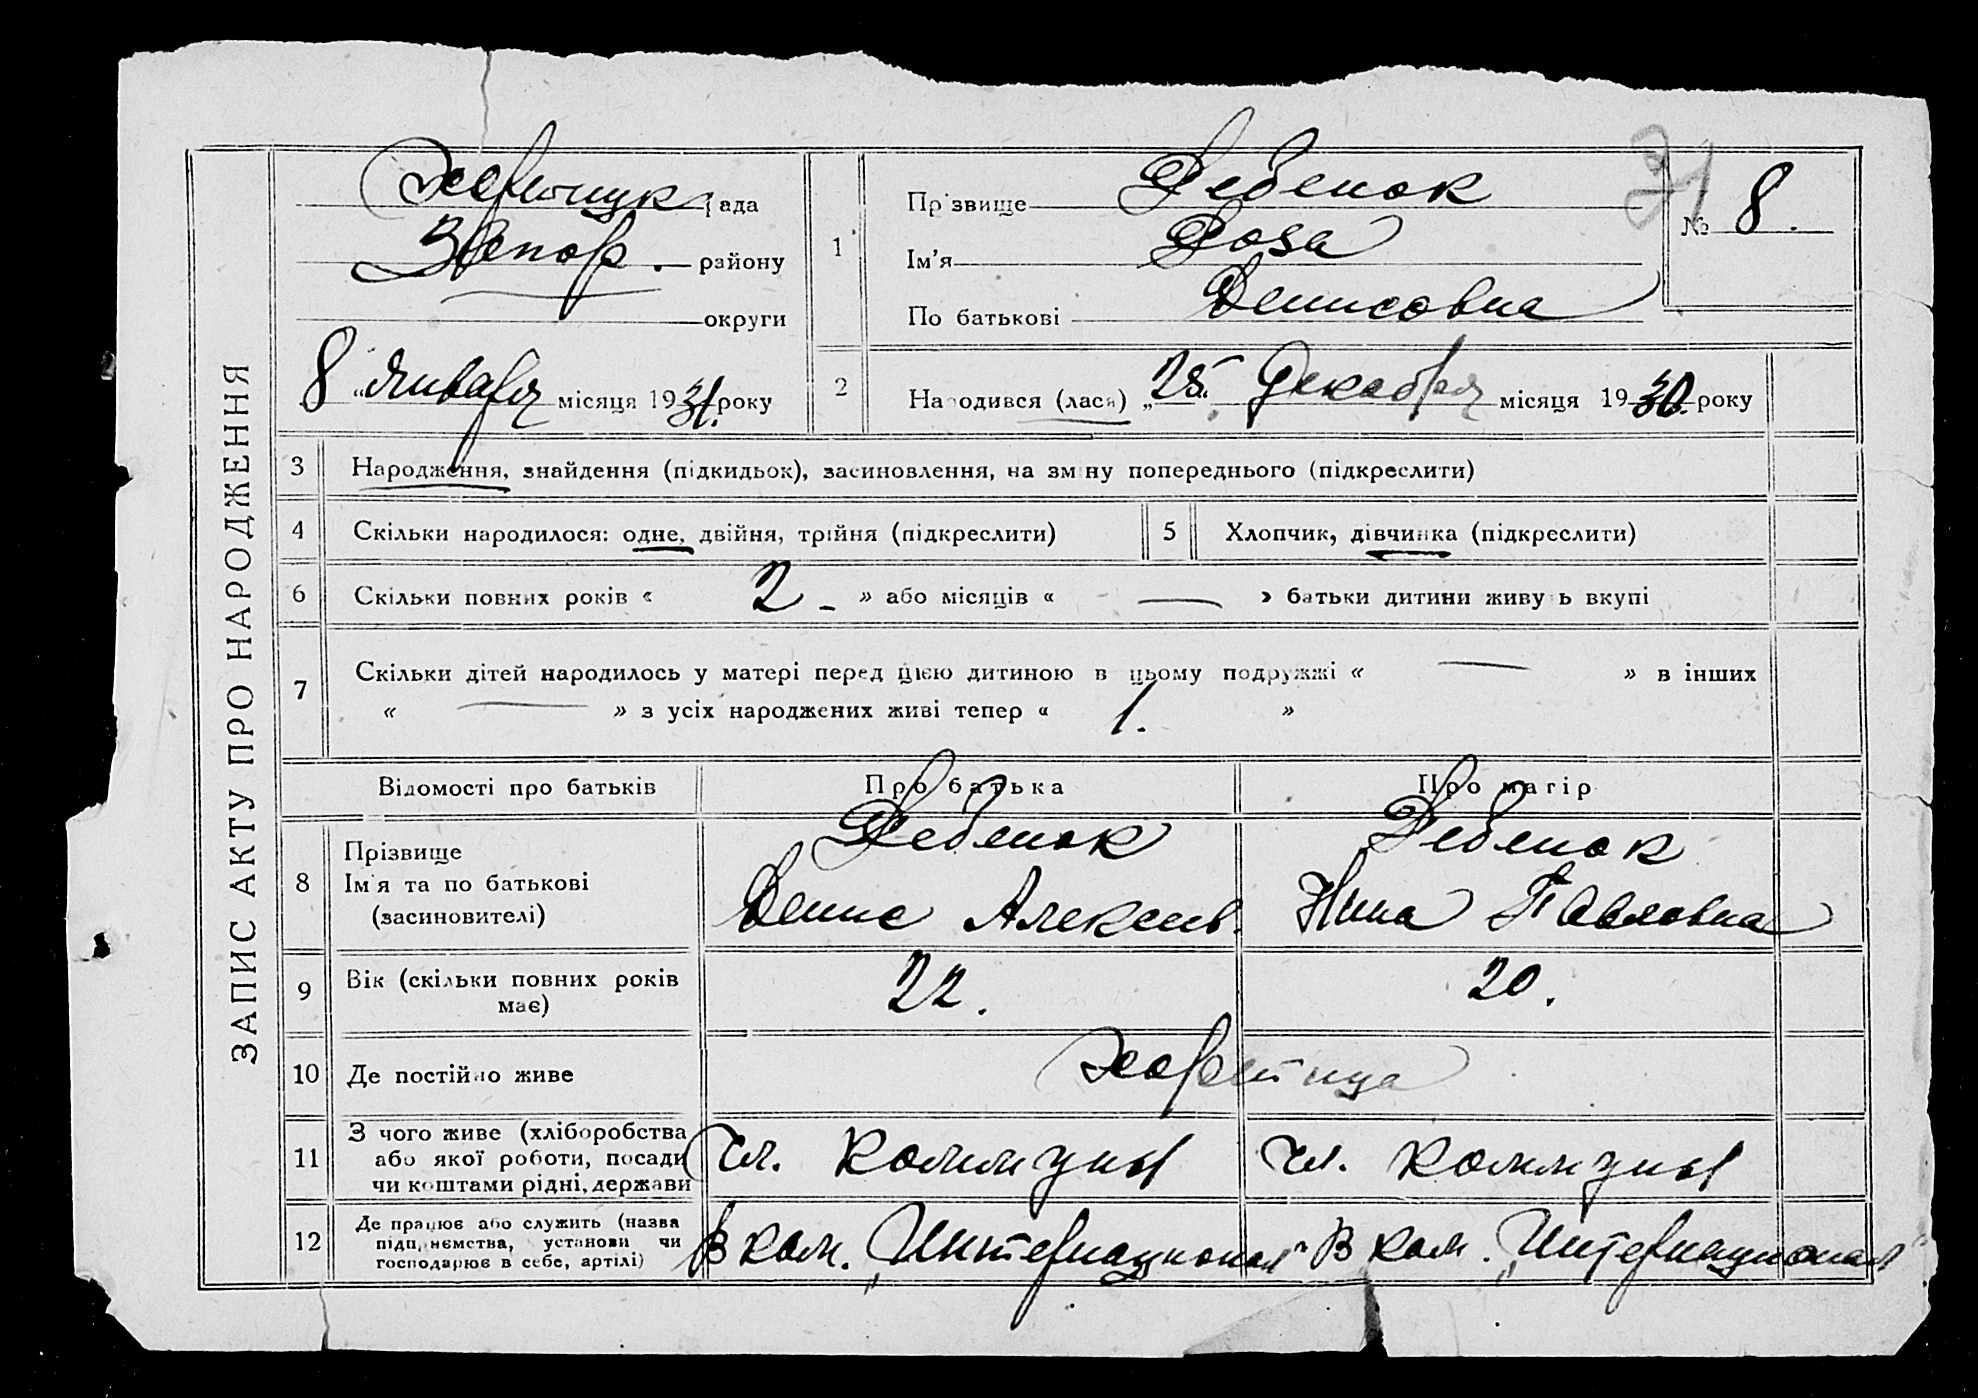 ЗАПИС АКТУ ПРО НАРОДЖЕННЯ
рада
Запор. району
округи
8 „Января місяця 1931. року
1
Прізвище Ребенок
Ім'я Роза
По батькові Денисовна
№ 8.
2
Народився (лася) „25" Декабря місяця 1930. року
3 Народження, знайдення (підкидьок), засиновлення, на зміну попереднього (підкреслити)
4 Скільки народилося: одне, двійня, трійня (підкреслити)
5 Хлопчик, дівчинка (підкреслити)
6 Скільки повних років « 2 - » або місяців « — » батьки дитини живуть вкупі
7 Скільки дітей народилось у матері перед цією дитиною в цьому подружжі « — » в інших
« — » з усіх народжених живі тепер « 1. »
Відомості про батьків Про батька Про матір
8 Прізвище
Ім'я та по батькові
(засиновителі)
Ребенок
Денис Алексеев.
Ребенок
Нина Павловна
9 Вік (скільки повних років
має)
22. 20.
10 Де постійно живе Хортица
11 З чого живе (хліборобства
або якої роботи, посади
чи коштами рідні, держави
Чл. коммуны чл. коммуны
12 Де працює або служить (назва
підприємства, установи чи
господарює в себе, артілі)
В ком. „Интернационал" В ком. „Интернационал"